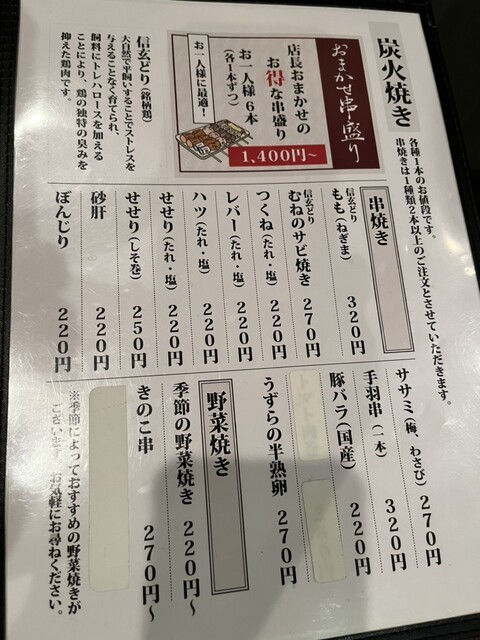 炭火焼き
各種1本のお値段です。
串焼きは1種類2本以上のご注文とさせていただきます。
おまかせ串盛り
店長おまかせの
お得な串盛り
お一人様6本
(各1本ずつ)
1,400円~
お一人様に最適!
信玄どり(銘柄鶏)
大自然で平飼いすることでストレスを
与えることなく育てられ、
飼料にトレハロースを加える
ことにより、鶏の独特の臭みを
抑えた鶏肉です。
串焼き
信玄どり
もも(ねぎま) 320円
信玄どり
むねのサビ焼き 270円
つくね(たれ・塩) 220円
レバー(たれ・塩) 220円
ハツ(たれ・塩) 220円
せせり(たれ・塩) 220円
せせり(しそ巻) 250円
砂肝 220円
ぼんじり 220円
ササミ(梅、わさび) 270円
手羽串(一本) 320円
豚バラ(国産) 220円
うずらの半熟卵 270円
野菜焼き
季節の野菜焼き 220円~
きのこ串 270円~
※季節によっておすすめの野菜焼きが
ございます。お気軽にお尋ねください。